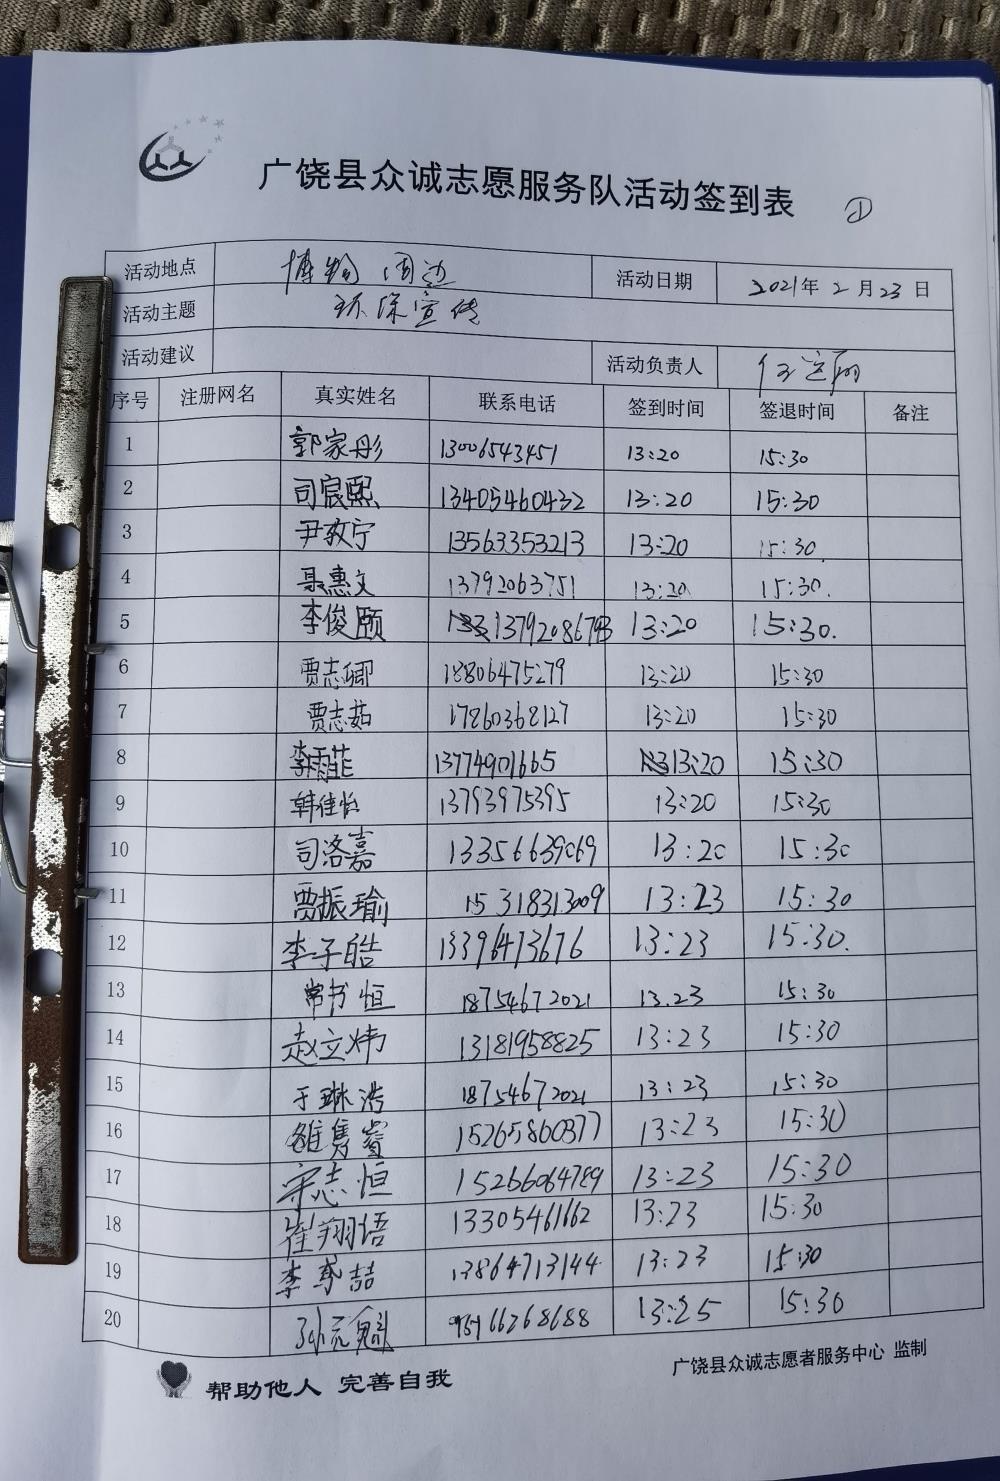 广饶县众诚志愿服务队活动签到表 ①
活动地点 博物 周边 活动日期 2021年 2 月 23 日
活动主题 环保宣传
活动建议 活动负责人
序号 注册网名 真实姓名 联系电话 签到时间 签退时间 备注
1 郭家彤 13006543451 13:20 15:30
2 司宸熙 13405460432 13:20 15:30
3 尹孜宁 13563353213 13:20 15:30
4 聂惠文 13792063751 13:20 15:30.
5 李俊颐 13792086793 13:20 15:30.
6 贾志卿 18806475279 13:20 15:30
7 贾志茹 17860368127 13:20 15:30
8 李雨菲 13774901665 13:20 15:30
9 韩佳怡 13793975395 13:20 15:30
10 司洺嘉 13356639069 13:20 15:30
11 贾振瑜 15318313009 13:23 15:30
12 李子皓 13396473676 13:23 15:30.
13 常书恒 18754672021 13.23 15:30
14 赵立炜 13181958825 13:23 15:30
15 于琳浩 18754672021 13:23 15:30
16 雒隽睿 15265860377 13:23 15:30
17 宋志恒 15266064789 13:23 15:30
18 崔翔语 13305461662 13:23 15:30
19 李喆 13864713144 13:23 15:30
20 孙元魁 66268688 13:25 15:30
帮助他人 完善自我 广饶县众诚志愿者服务中心 监制